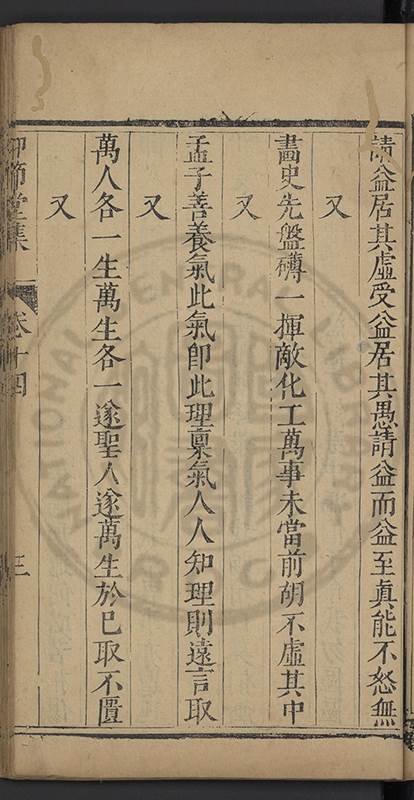 請益居其虛受益居其愚請益而益至眞能不怒無
又
畵史先盤礴一揮敵化工萬事未當前胡不虛其中
又
孟子善養氣此氣卽此理稟氣人人知理則遠言取
又
萬人各一生萬生各一遂聖人遂萬生於已取不匱
又
仰節堂集 卷十四 三